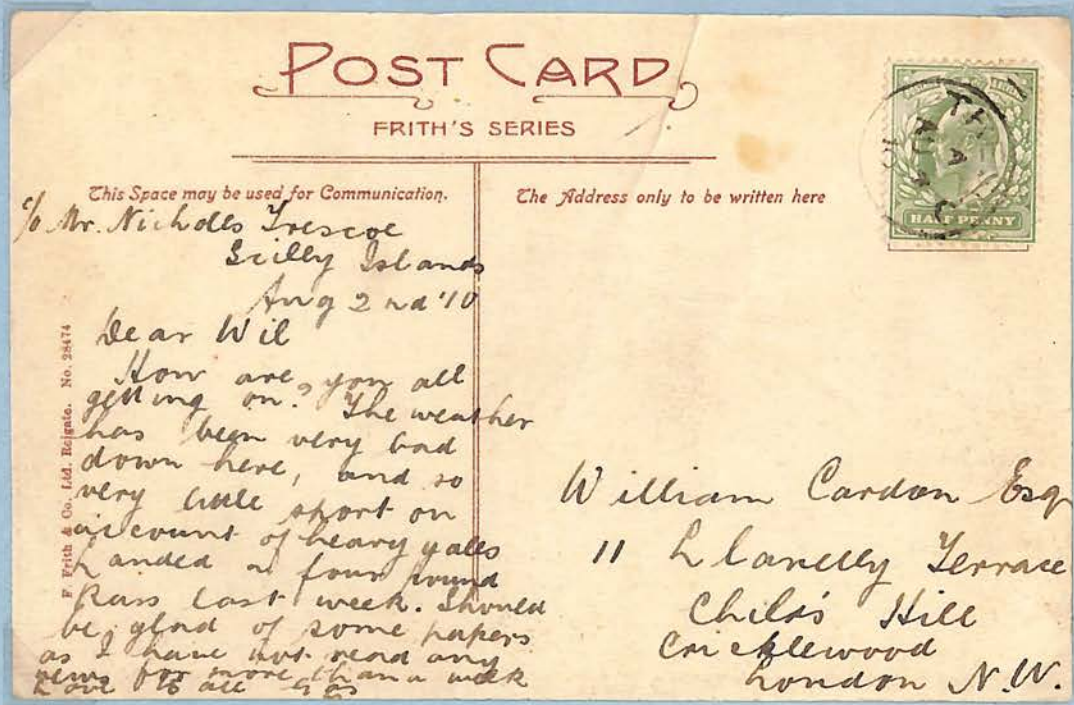 POST CARD
FRITH'S SERIES
This Space may be used for Communication.
The Address only to be written here
HALF PENNY
c/o Mr. Nicholls Trescoe
Scilly Islands
Aug 2nd '10
Dear Wil
How are you all
getting on? The weather
has been very bad
down here, and so
very little sport on
account of heavy gales
Landed a four pound
Bass last week. Should
be glad of some papers
as I have not read any
news for more than a week
Love to all
F Frith & Co. Ltd. Reigate. No. 28474
William Cardon Esq
11 Llanelly Terrace
Child's Hill
Cricklewood
London N.W.